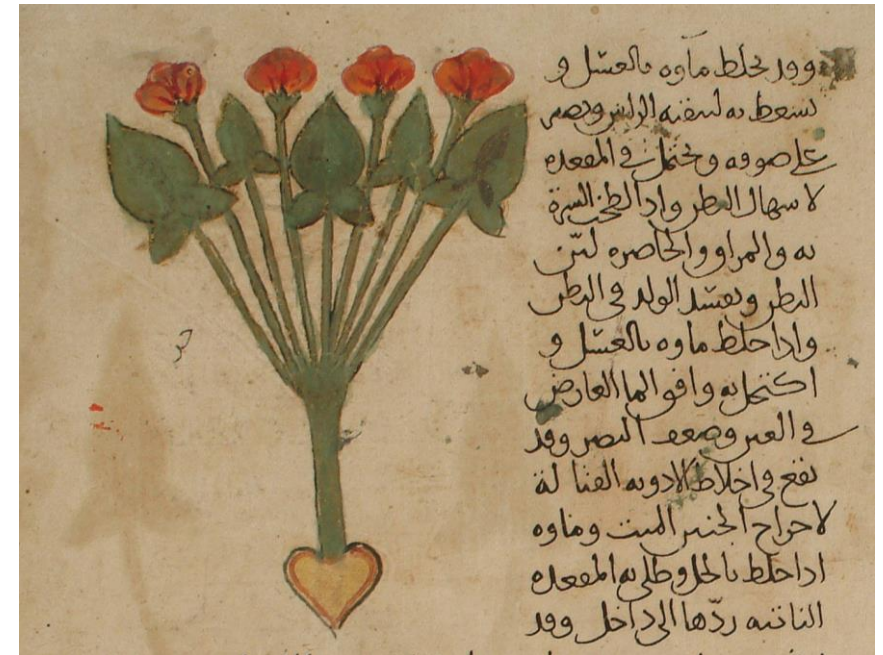 وقد يخلط ماوه بالعسل و
يسعط به لينقيه الراس ويصير
على صوفه ويحتمل في المقعده
لاسهال البطن واذا لطخت السرة
به والمراق والخاصره ليّن
البطن ويفسد الولد في البطن
واذا خلط ماوه بالعسل و
اكتحل به وافق الما العارض
في العين وضعف البصر وقد
يقع في اخلاط الادويه القتالة
لاخراج الجنين الميت وماوه
اذا خلط بالخل وطلي به المقعده
الناتيه ردّها الى داخل وقد